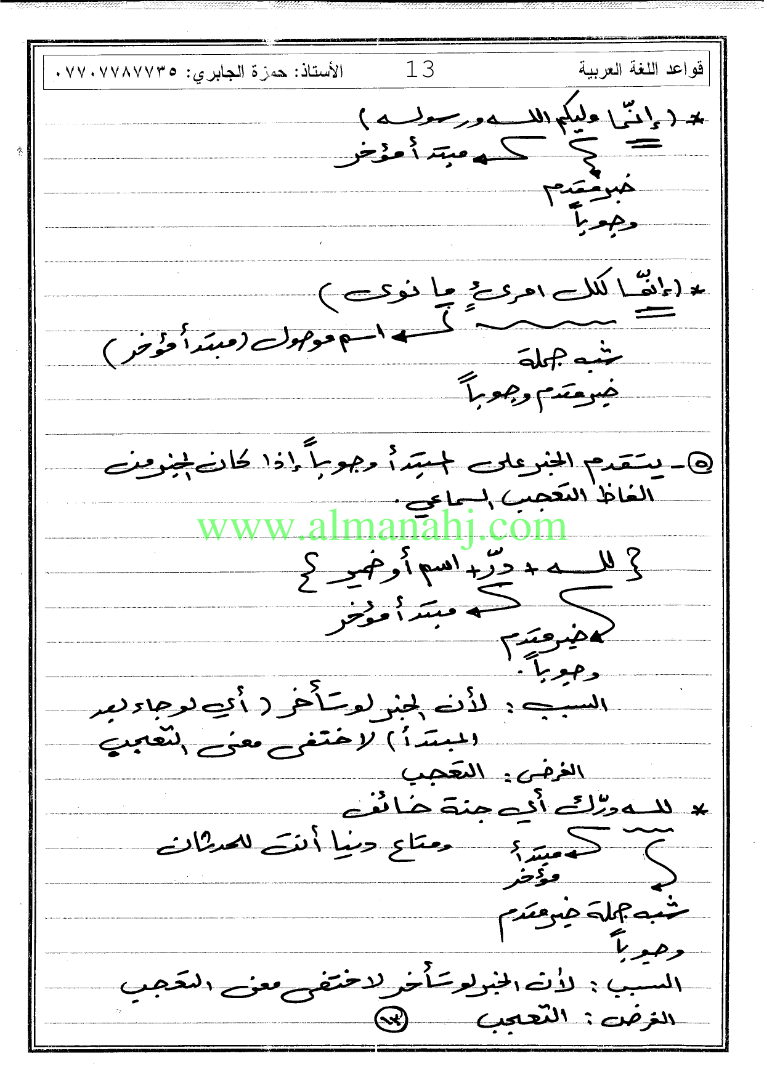 قواعد اللغة العربية 13 الأستاذ: حمزة الجابري: ٠٧٧٠٧٧٨٧٧٣٥
* (إنّما وليكم الله ورسوله)
مبتدأ مؤخر
خبر مقدم
وجوباً
* (إنّما لكل امرئٍ ما نوى)
اسم موصول (مبتدأ مؤخر)
شبه جملة
خبر مقدم وجوباً
٥- يتقدم الخبر على المبتدأ وجوباً إذا كان الخبر من
الفاظ التعجب السماعي.
www.almanahj.com
{ لله + درّ + اسم أو ضمير }
مبتدأ مؤخر
خبر مقدم
وجوباً.
السبب: لأن الخبر لو تأخر (أي لو جاء بعد
المبتدأ) لاختفى معنى التعجب
الغرض: التعجب
* لله درّك أي جنة خائف
ومتاع دنيا أنت للحدثان
مبتدأ
مؤخر
شبه جملة خبر مقدم
وجوباً
السبب: لأن الخبر لو تأخر لاختفى معنى التعجب
الغرض: التعجب
١٣